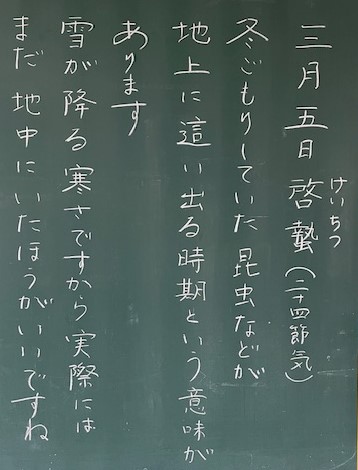 三月五日 啓蟄(二十四節気)
けいちつ
冬ごもりしていた 昆虫などが
地上に這い出る時期という意味が
あります
雪が降る寒さですから 実際には
まだ 地中にいたほうがいいですね